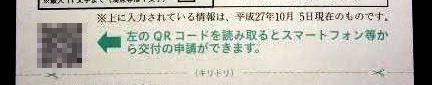 ※上に入力されている情報は、平成27年10月 5日現在のものです。
左のQRコードを読み取るとスマートフォン等か
ら交付の申請ができます。
(キリトリ)